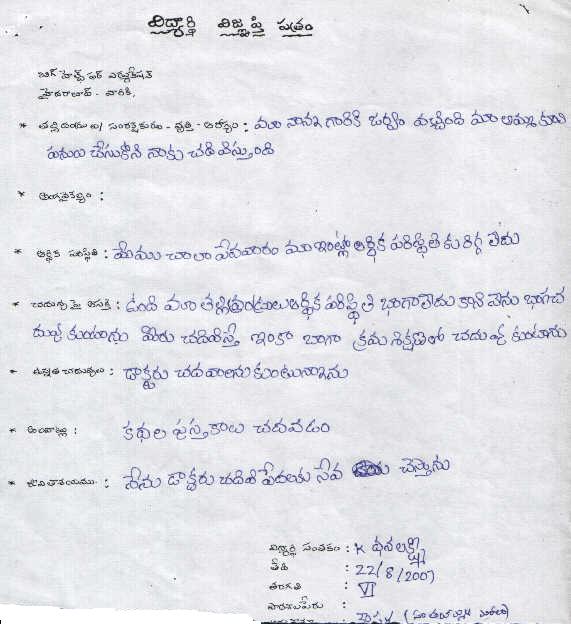 విద్యార్థి విజ్ఞప్తి పత్రం
బిగ్ హెల్ప్ ఫర్ ఎడ్యుకేషన్
హైదరాబాద్ - వారికి,
* తల్లిదండ్రులు/ సంరక్షకుడు - వృత్తి - ఆరోగ్యం : మా నాన్న గారికి జర్వం వచ్చింది మా అమ్మ కూలి
పనులు చేసుకొని నాకు చదివిస్తుంది
* అంగవైకల్యం :
* ఆర్థిక పరిస్థితి : మేము చాలా పేదవారం మా ఇంట్లో ఆర్థిక పరిస్థితి కుదిగ్గ లేదు
* చదువు పై ఆసక్తి : ఉంది మా తల్లితండ్రులు ఆర్థిక పరిస్థితి బాగాలేదు కాని నేను బాగచ
దువ్వుకుంటాను మీరు చదివిస్తే ఇంకా బాగా క్రమశిక్షణలో చదువ్వుకుంటాను
* ఉన్నత చదువులు : డాక్టరు చదవాలనుకుంటున్నాను
* అలవాట్లు : కథల పుస్తకాలు చదవడం
* జీవితాశయము : నేను డాక్టరు చదివి పేదలకు సేవ చేస్తాను
విద్యార్థి సంతకం : K ధనలక్ష్మి
తేది : 22/8/2007
తరగతి : VI
పాఠశాలపేరు :